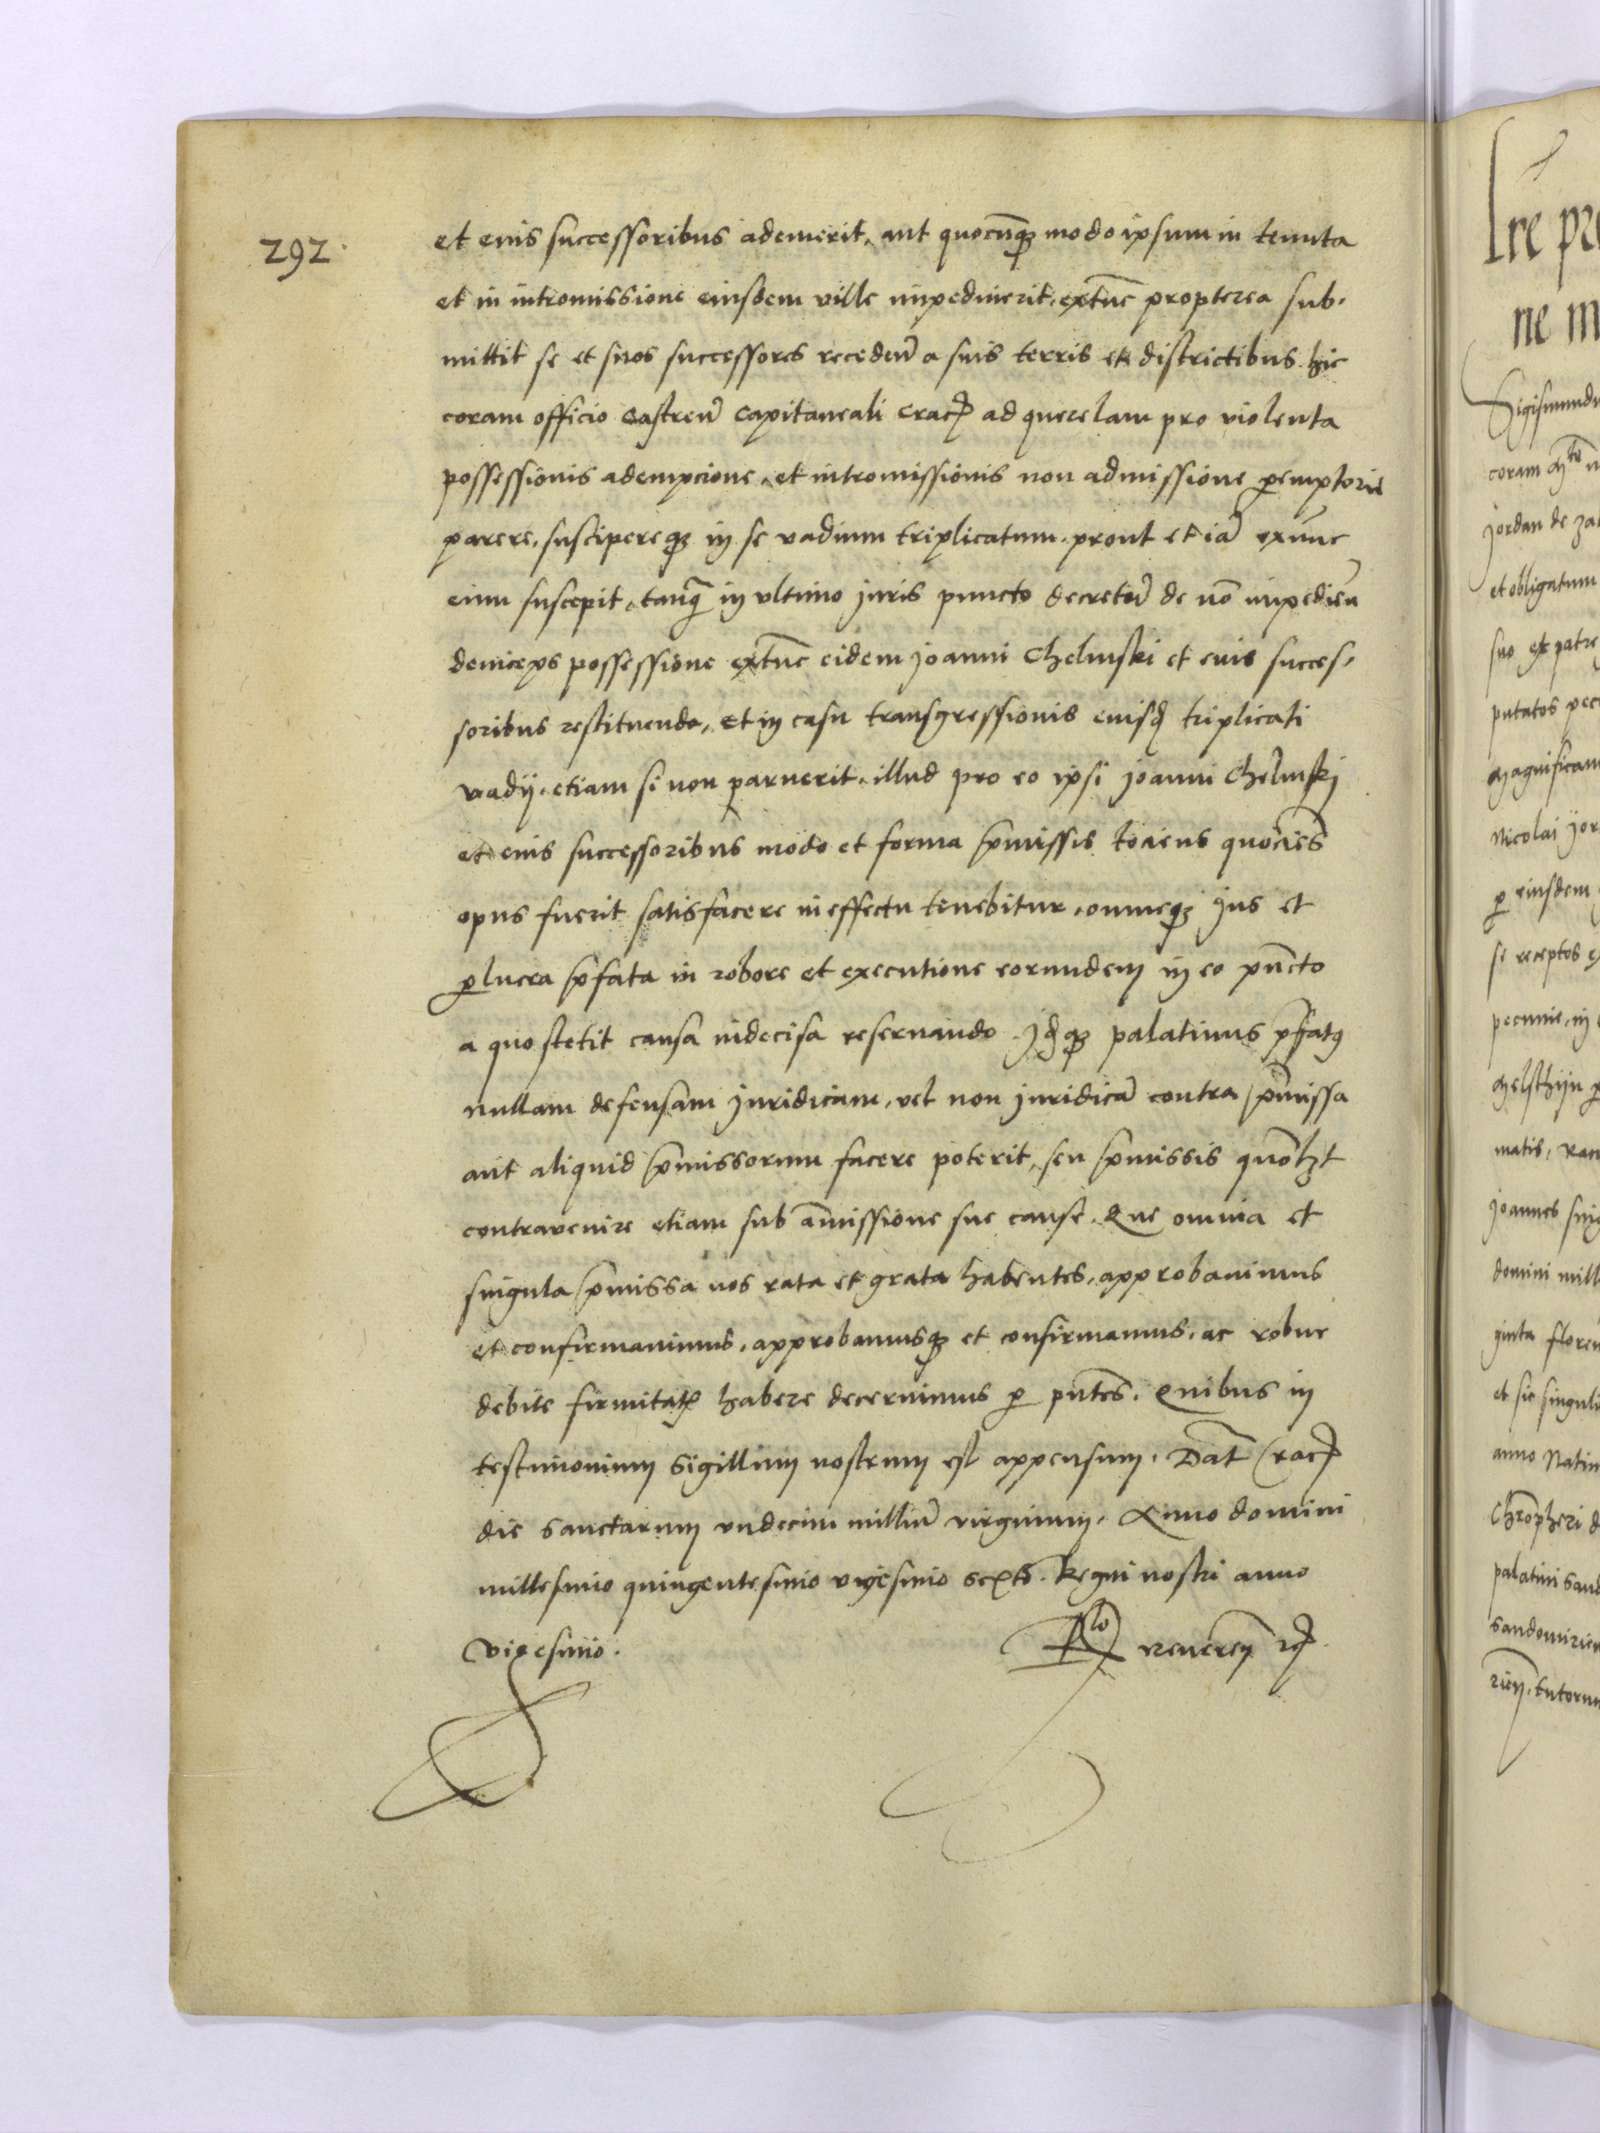 292.
et eius successoribus ademerit, aut quocūqȝ modo ipsum in tenuta
et in intromissione eiusdem ville impedinerit, extūc propterea sub-
mittit se et suos successores recedeñ a suis terris et districtibus hic
coram officio Castreñ Capitaneali Crac̄ ad querelam pro violenta
possessionis ademptione, et intromissionis non admissione ꝑemptorie
parere, suscipereqȝ in se vadium triplicatum, prout et iā exnūc
eum suscepit, tanq̄ in vltimo iuris puncto decretoꝝ de nō impedieñ
deinceps possessione extūc eidem Joanni Chelmski et eius succes-
soribus restituenda, Et in casu transgressionis eiusd̄ triplicati
vadij, etiam si non paruerit, illud pro eo ipsi Joanni Chelmskj
et eius successoribus modo et forma p̄missis tociens quociēs
opus fuerit satisfacere in effectu tenebitur, omneqȝ Jus et
ꝑlucra p̄fata in robore et executione eorundem in eo pūcto
a quo stetit causa indecisa reseruando. Jdqȝ palatinus p̄fatꝰ
nullam defensam iuridicam, vel non iuridicā contra p̄missa
aut aliquid p̄missorum facere poterit, seu p̄missis quōlȝt
contravenire etiam sub āmissione sue cause. Que omnia et
singula p̄missa nos rata et grata habentes, approbauimus
et confirmauimus, approbamusqȝ et confirmamus, ac robur
debite firmitatꝭ habere decernimus ꝑ pn̄tes. Quibus in
testimonium Sigillum nostrum est appensum. Dat̄ Crac̄
die Sanctarum vndecim milliū virginum, Anno domini
millesimo quingentesimo vigesimo sexto. Regni nostri anno
vigesimo.
R̄lo reuereñ
Lre
ne
Sigismundu
coram
Jordan de Za
et obligatum
suo et patre
putatos pec
Magnificam
Nicolai Jor
ꝑ eiusdem
se receptos
pecunie, in
Melsthijn
matis,
Joannes
domini mill
ginta floreñ
et sic singul
anno Nati
Chrōpheri
palatini Sand
Sandomirieñ
rieñ, tutorum